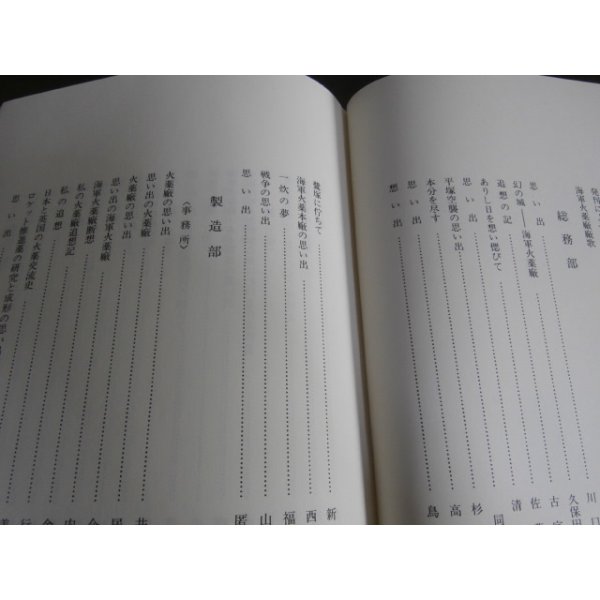 海軍火薬廠廠歌
総務部
思い出
幻の城――海軍火薬廠
追想の記
ありし日を想い偲びて
思い出
平塚空襲の思い出
本分を尽す
思い出
想い出
川口
久保田
古
佐
清
同
杉
高
鳥
鷺塚に佇ちて
海軍火薬本廠の思い出
一炊の夢
戦争の思い出
思い出
新
西
福
山
匿
製造部
《事務所》
火薬廠の思い出
思い出の火薬廠
火薬廠の思い出
思い出の海軍火薬廠
海軍火薬廠断想
私の火薬廠追想記
私の追想
日本と英国の火薬交流史
ロケット推進薬の研究と成形の思い
思い出
井